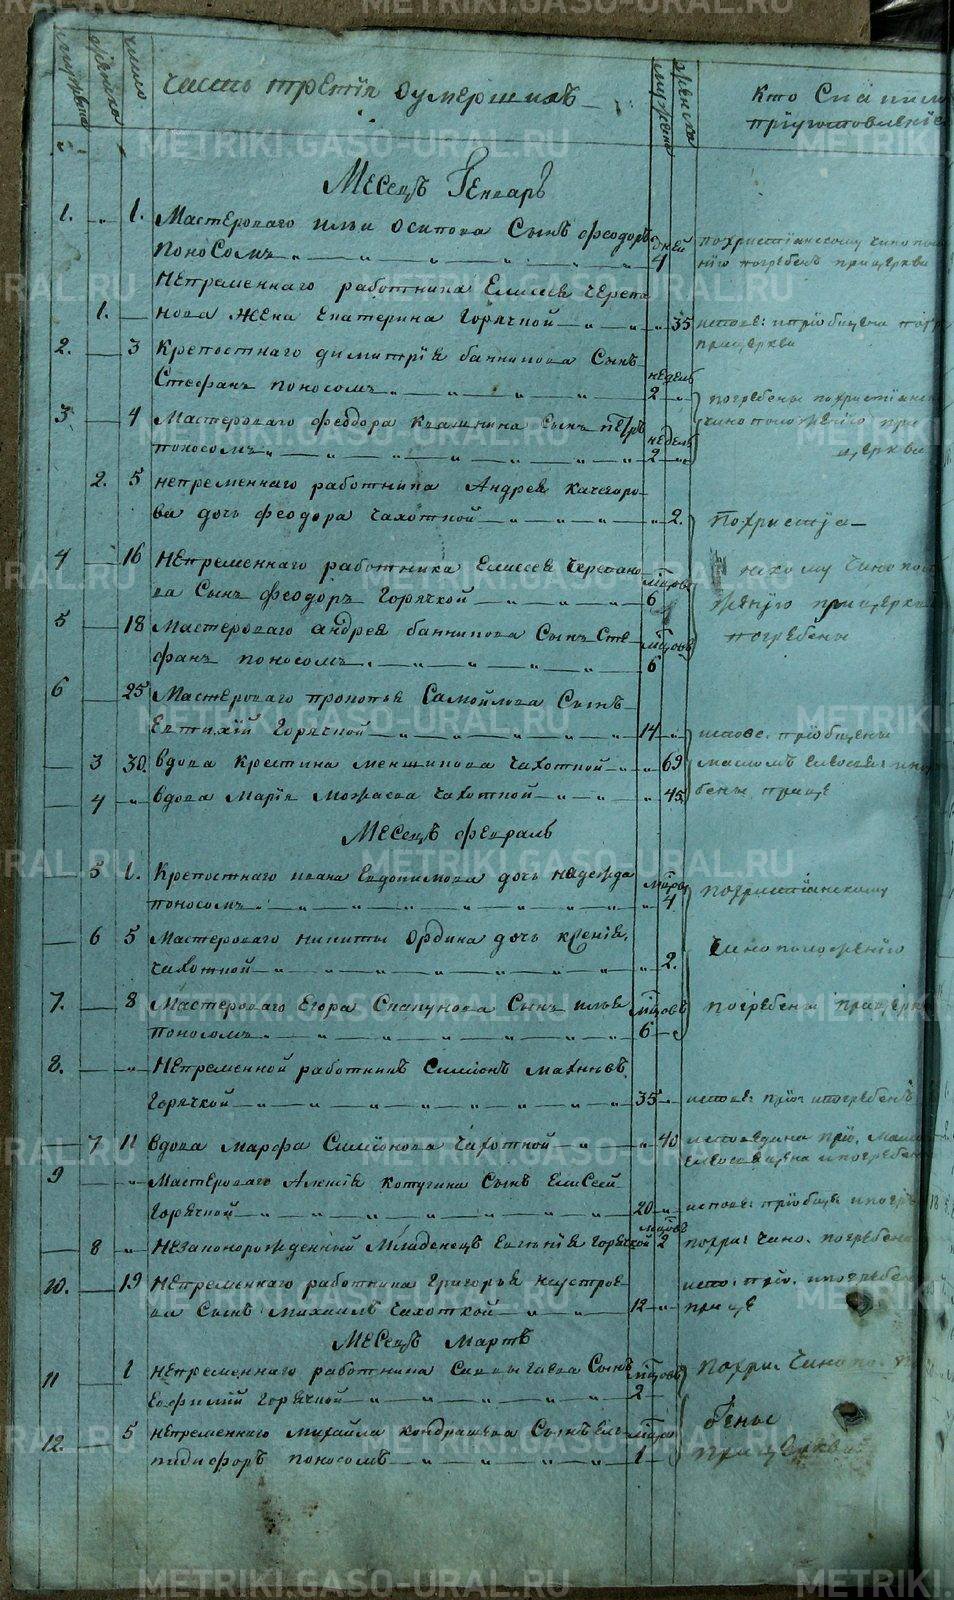 мужеска
женска
число
Часть третія оумершихъ
мужска
женска
Кто
пріуготовленіе
Месецъ Генварь
1. „ 1. Мастероваго Ильи Осипова Сынъ Феодоръ дней
поносомъ „ „ „ „ „ 4 похристіанскому чино поло
нію погребенъ прицеркви
Непременнаго работника Елисея Черепа
1. — нова жена Екатерина Горячкой „ „ „ 35 испове: ипріобщена погре
прицеркви
2. 3 Крепостнаго Димитрія Банникова Сынъ
Стефанъ поносомъ „ „ „ „ недель 2 „ погребены похристіанск
3 4 Мастероваго Феодора Квашнина Сынъ Петръ чино положенію при
поносомъ „ „ „ „ „ недель 2 „ церкви
2. 5 непременнаго работника Андрея Качегаро
ва дочь Феодора Чахотной „ „ „ „ 2. Похристіа—
4 16 Непременнаго работника Елисея Черепано
ва Сынъ Феодоръ Горячкой „ „ „ 6 нскому Чино поло
женію прицеркви
5 18 Мастероваго Андрея Банникова Сынъ Сте погребены
фанъ поносомъ „ „ „ „ „ мцовъ 6
6 25 Мастероваго Прокопья Самойлова Сынъ
Евтихій Горячкой „ „ „ „ 14 „ испове. пріобщены
3 30. Вдова Крестина Меншикова Чахотной „ „ 69 масломъ
4 „ Вдова Марія Можаева Чахотной „ „ „ 45. бены прице
Месецъ Февраль
5 1. Крепостнаго Ивана Евдокимова дочь Надежда
поносомъ „ „ „ „ „ „ 4 похристіанскому
6 5 Мастероваго Никиты Ордина дочь Ксенія,
Чахотной „ „ „ „ „ „ 2. Чино положенію
7. 8 Мастероваго Егора Скапунова Сынъ Илья мцовъ
поносомъ „ „ „ „ „ 6 погребены прицеркви
8. „ Непременной работникъ Симіонъ Махневъ
Горячкой „ „ „ „ „ „ 35 „ испове: пріо: ипогребенъ
7 11 Вдова Марфа Симіонова Чахотной „ „ 40 исповедана прі. масл
елеосвящена ипогребен
9 „ Мастероваго Алексія Котугина Сынъ Елисей
Горячкой „ „ „ „ „ „ 20 „ испове: пріобще ипогре
8 „ Незаконорожденный Младенецъ Евгенія Горячкой мцовъ 2 похри: чино. погребена
10. 19 Непременнаго работника Григорья Неустрое испо: пріо. ипогребен
ва Сынъ Михаилъ Чахоткой „ „ „ 12 „ прице
Месецъ Мартъ
11 1 непременнаго работника Саввы Гаева Сынъ мцовъ
Ефимій Горячкой „ „ „ „ „ 2 похри: Чино
12. 5 непременнаго Михайла Кондрашева Сынъ Ел мцъ бены
пидифоръ поносомъ „ „ „ „ „ 1 прицеркви
METRIKI.GASO-URAL.RU